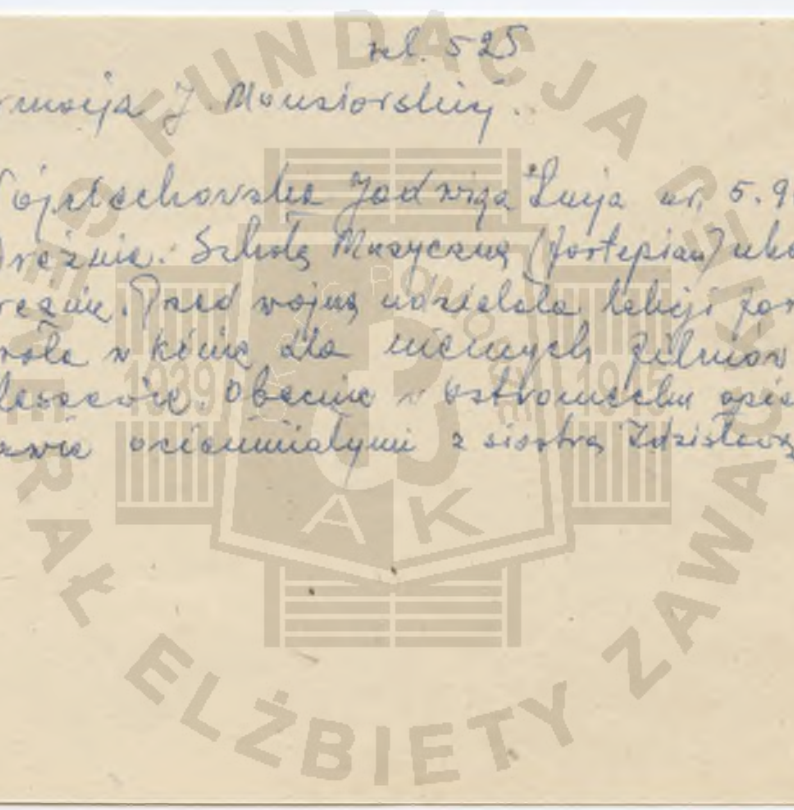 rel. 525
rmacja J. Monsiorskiej.
ojciechowska Jadwiga Łucja ur. 5.9
Dreźnie. Szkołę Muzyczną (fortepian) uko
reźnie. Przed wojną udzielała lekcji for
rała w kinie dla niemych filmów
leszewie. Obecnie w Ostromecku opie
awie ociemniałymi z siostrą Zdzisławą
FUNDACJA GENERAŁ ELŻBIETY ZAWACKIEJ
1939 1945
AK